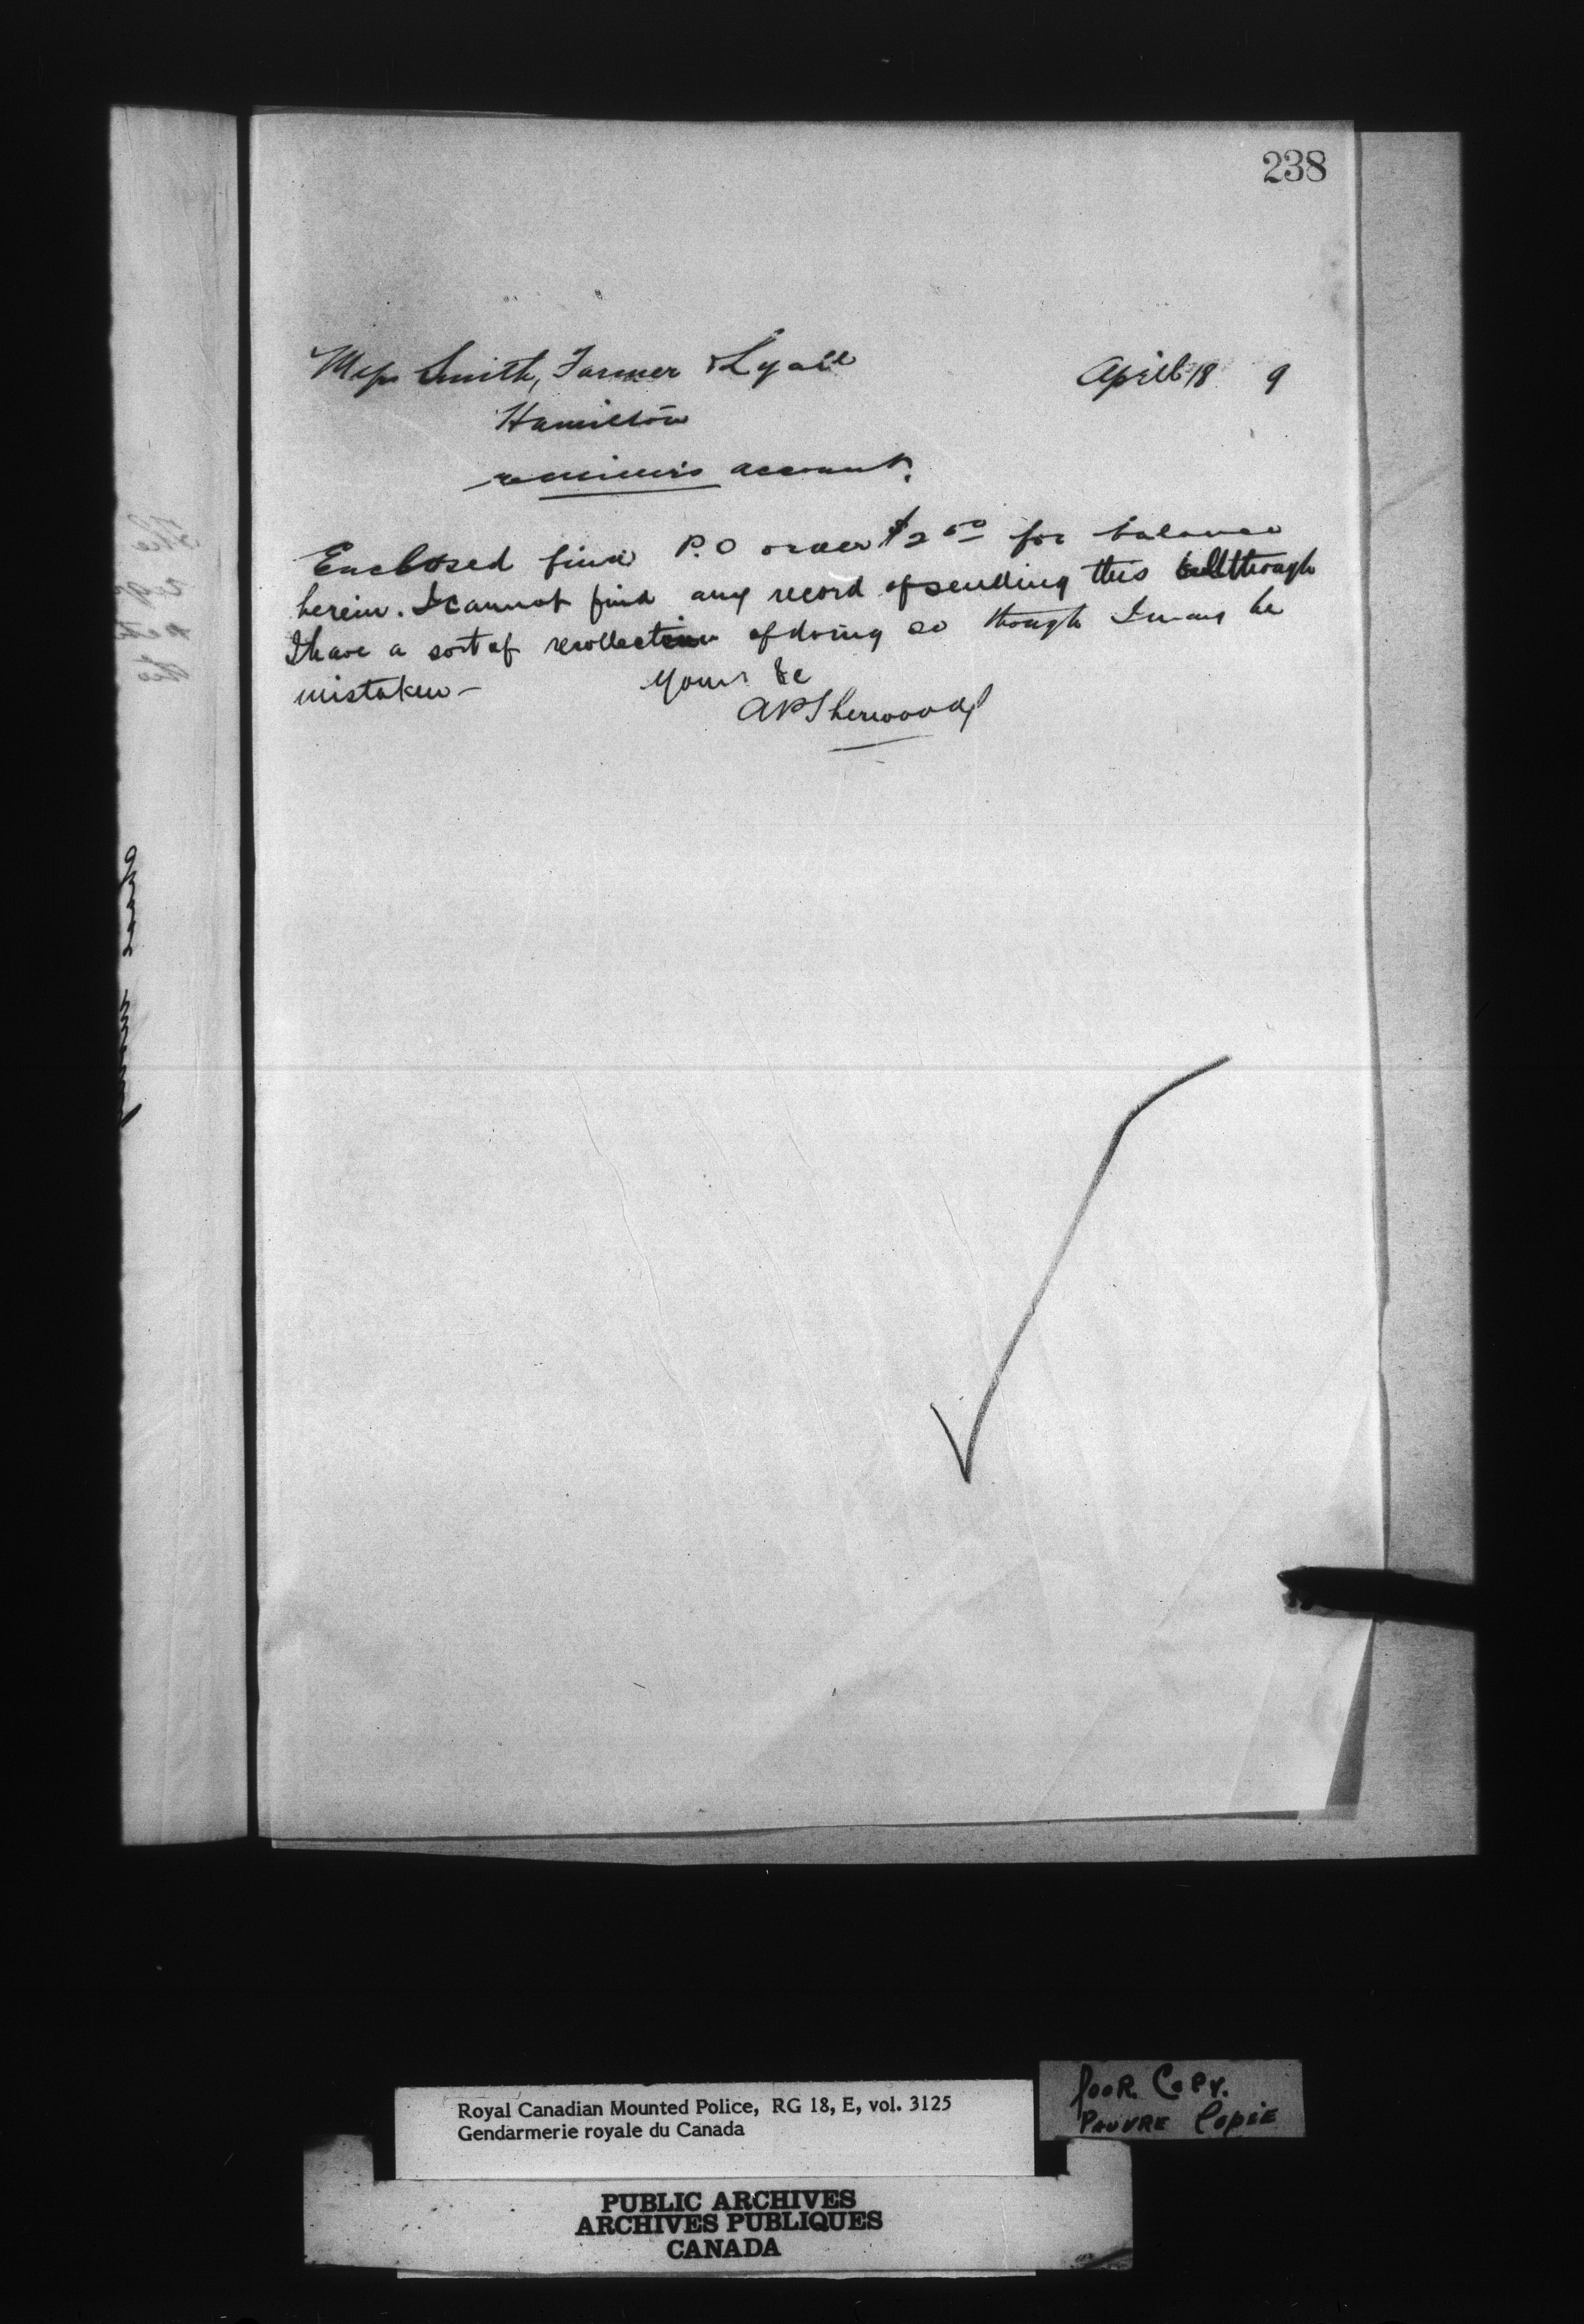 238
Mess Smith, Farmer & Lyall
April 18 9
Hamilton
re account.
Enclosed find P.O order $2 50 for balance
herein. I cannot find any record of sending this although
I have a sort of recollection of doing so though I may be
mistaken —
Yours &c
A P Sherwood
Royal Canadian Mounted Police, RG 18, E, vol. 3125
Gendarmerie royale du Canada
Poor Copy.
Pauvre Copie
PUBLIC ARCHIVES
ARCHIVES PUBLIQUES
CANADA